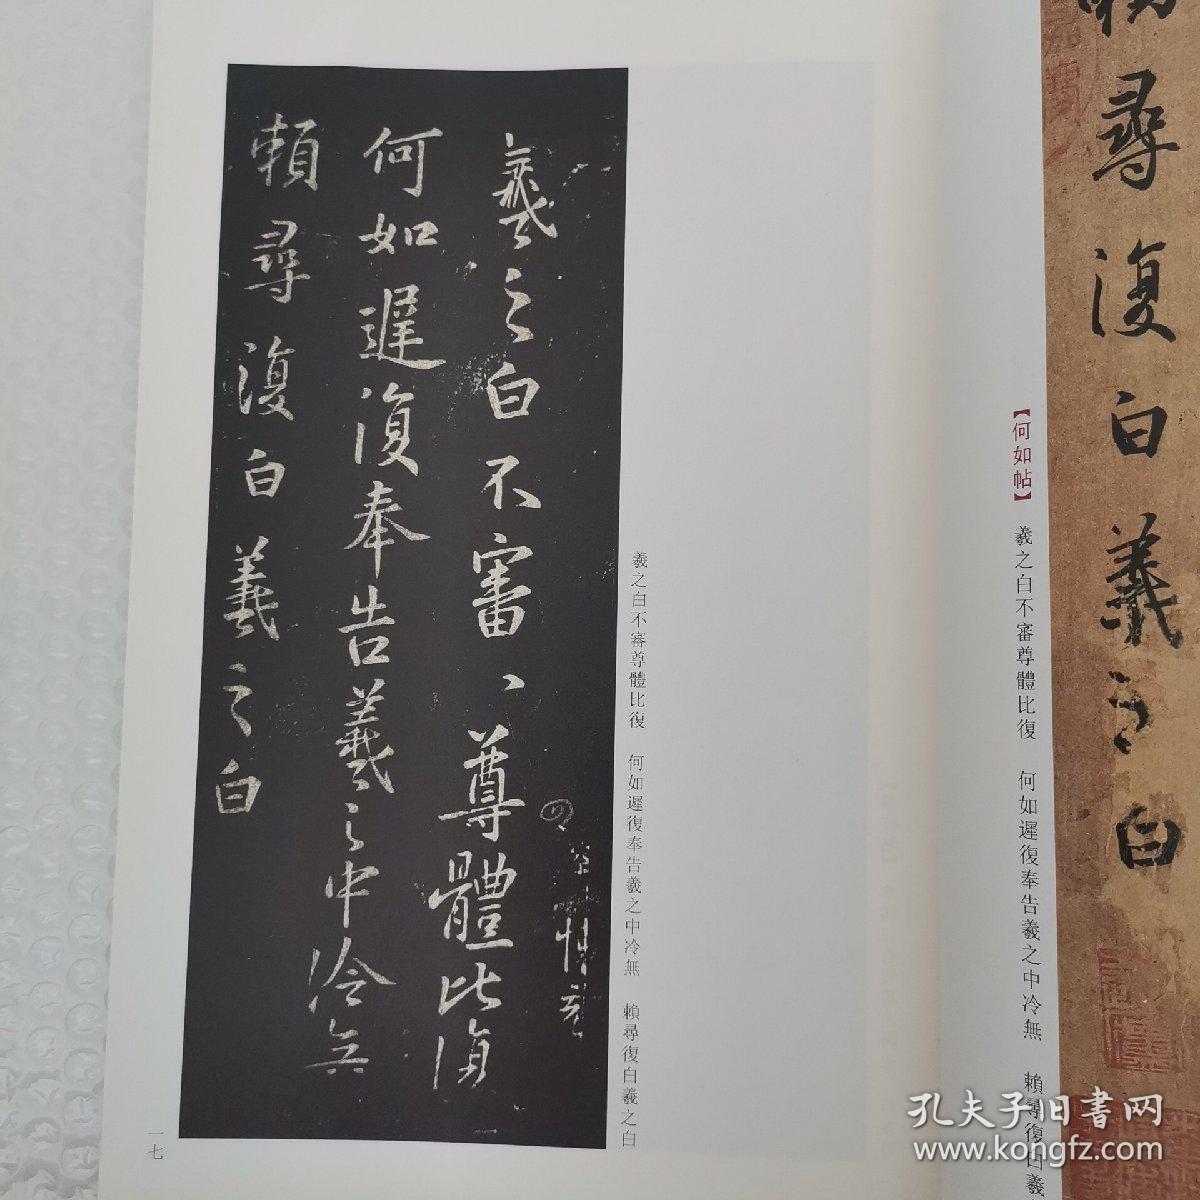 尋復白羲之白
【何如帖】 羲之白不審尊體比復 何如遲復奉告羲之中冷無 賴尋復白羲
羲之白不審尊體比復 何如遲復奉告羲之中冷無 賴尋復白羲之白
羲之白不審、尊體比復
何如遲復奉告羲之中冷無
賴尋復白羲之白
一七
孔夫子旧书网
www.kongfz.com